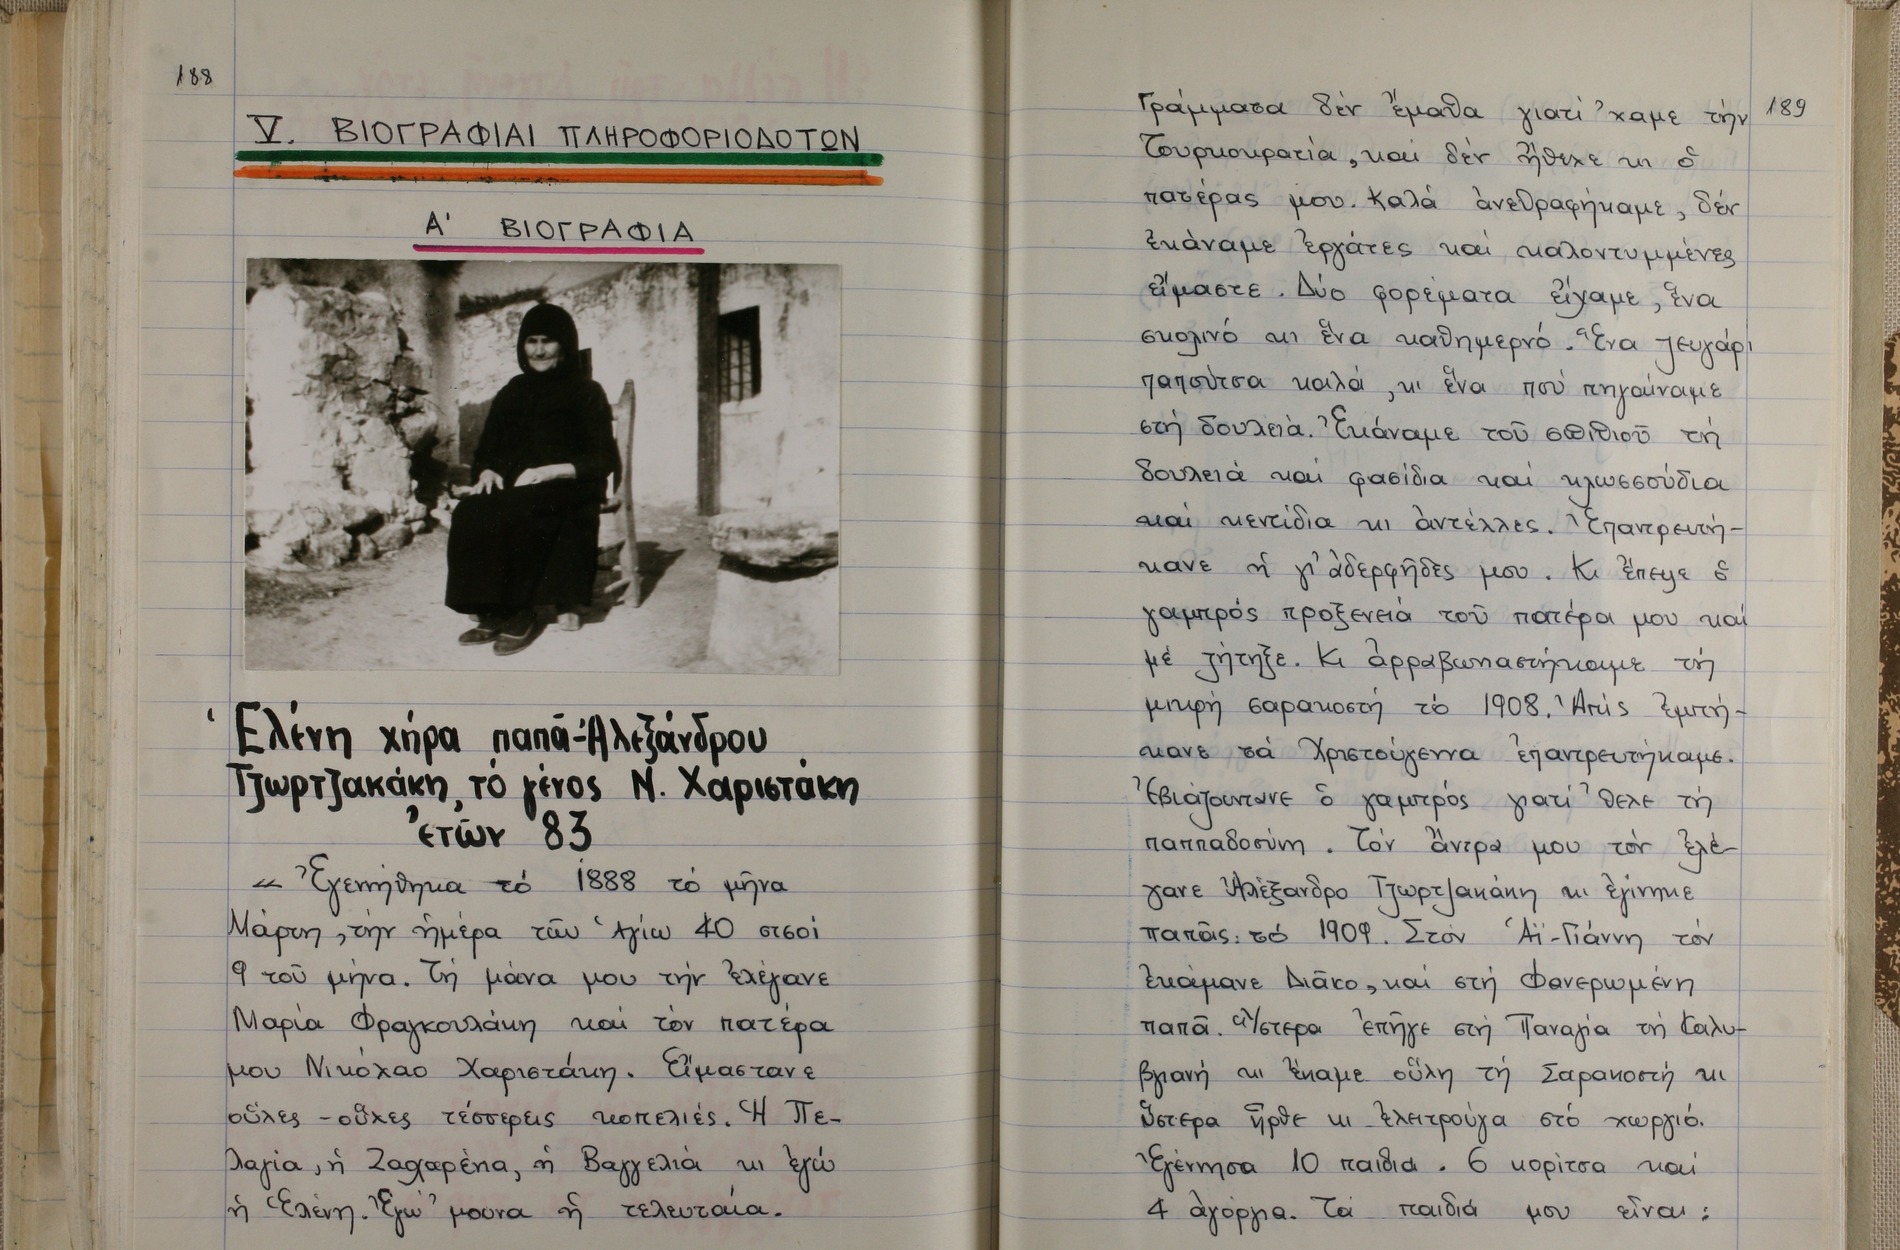 188
V. ΒΙΟΓΡΑΦΙΑΙ ΠΛΗΡΟΦΟΡΙΟΔΟΤΩΝ
Α' ΒΙΟΓΡΑΦΙΑ
Ἑλένη χήρα παπᾶ-Ἀλεξάνδρου
Τζωρτζακάκη, τό γένος Ν. Χαριστάκη
ἐτῶν 83
« Ἐγεννήθηκα τό 1888 τό μῆνα
Μάρτη, τήν ἡμέρα τῶν Ἁγίω 40 στσοί
9 τοῦ μήνα. Τή μάνα μου τήν ἐλέγανε
Μαρία Φραγκουλάκη καί τόν πατέρα
μου Νικόλαο Χαριστάκη. Εἴμαστανε
οὗλες-οὗλες τέσσερεις κοπελιές. Ἡ Πε-
λαγία, ἡ Ζαχαρένια, ἡ Βαγγελιά κι ἐγώ
ἡ Ἑλένη. Ἐγώ 'μουνα ἡ τελευταία.
189
Γράμματα δέν ἔμαθα γιατί 'χαμε τήν
Τουρκοκρατία, καί δέν ἤθελε κι ὁ
πατέρας μου. Καλά ἀνεθραφήκαμε, δέν
ἐκάναμε ἐργάτες καί καλοντυμμένες
εἴμαστε. Δύο φορέματα εἴχαμε, ἕνα
σκολινό κι ἕνα καθημερνό. Ἕνα ζευγάρι
παπούτσα καλά, κι ἕνα πού πηγαίναμε
στή δουλειά. Ἐκάναμε τοῦ σπιθιοῦ τή
δουλειά καί φασίδια καί κλωσσούδια
καί κεντίδια κι ἀντέλλες. Ἐπαντρευτή-
κανε ἡ γι' ἀδερφῆδες μου. Κι ἔπεψε ὁ
γαμπρός προξενειά τοῦ πατέρα μου καί
μέ ζήτηξε. Κι ἀρραβωνιαστήκαμε τή
μικρή σαρακοστή τό 1908. Ἀπίς ἐμπή-
κανε τά Χριστούγεννα ἐπαντρευτήκαμε.
Ἐβιάζουντανε ὁ γαμπρός γιατί 'θελε τή
παππαδοσύνη. Τόν ἄντρα μου τόν ἐλέ-
γανε Ἀλέξανδρο Τζωρτζακάκη κι ἐγίνηκε
παπᾶς τό 1909. Στόν Ἁϊ-Γιάννη τόν
ἐκάμανε Διᾶκο, καί στή Φανερωμένη
παπᾶ. Ὕστερα ἐπῆγε στή Παναγία τή Καλυ-
βγιανή κι ἔκαμε οὕλη τή Σαρακοστή κι
ὕστερα ἦρθε κι ἐλειτρούγα στό χωργιό.
Ἐγέννησα 10 παιδιά. 6 κορίτσα καί
4 ἀγόργια. Τά παιδιά μου εἶναι: